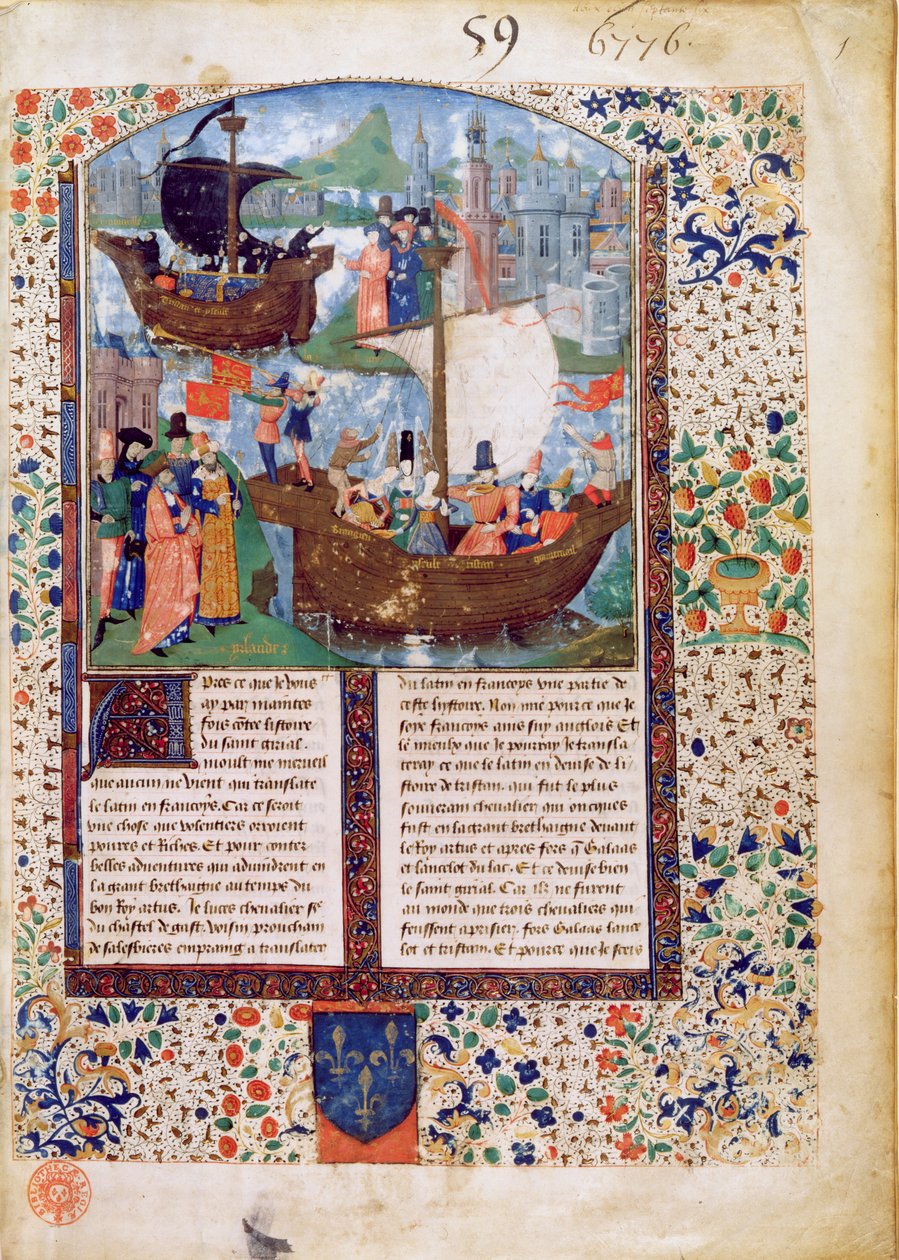 59
6776.
1
Tristan et yseult
brangien
yseult
tristan
gouuernail
yrlande
Apres ce que Je vous
ay par maintes
fois cõtre listoire
du saint graal.
moult me merueil
que aucun ne vient qui translate
le latin en francoys. Car ce seroit
vne chose que volentiers orroient
poures et Riches. Et pour conter
belles aduentures qui aduindrent en
la grant brethaigne au temps du
bon Roy artus. Je luces cheualier sr
du chastel de gast. voisin prouchain
de salesbieres empraing a translater
du latin en francoys vne partie de
ceste hystoire. Non mie pource que Je
soye francoys ains suy anglois Et
le mieulx que Je pourray Je transla
teray ce que le latin en deuise de li
stoire de tristan. qui fut le plus
souuerain cheualier qui oncques
fust en la grant brethaigne deuant
le Roy artus et apres fors q̃ Galaas
et lancelot du lac. Et ce deuise bien
le saint graal. Car ilz ne furent
au monde que trois cheualiers qui
feussent a prisier. fors Galaas lance
lot et tristam. Et pource que Je scets
BIBLIOTHECÆ REGIÆ